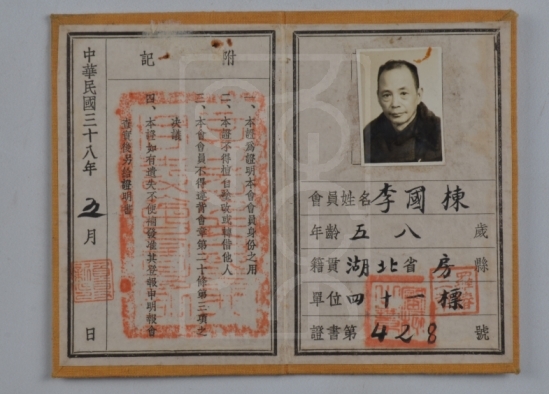 會員姓名李國棟
年齡五八歲
籍貫湖北省房縣
單位四十一標
證書第428號
附記
一、本證爲證明本會會員身份之用
二、本證不得擅自塗改或轉借他人
三、本會會員不得違背會章第二十條第二項之
決議
四、本證如有遺失不
登報申明報會
查實後另給證明書
中華民國三十八年五月 日